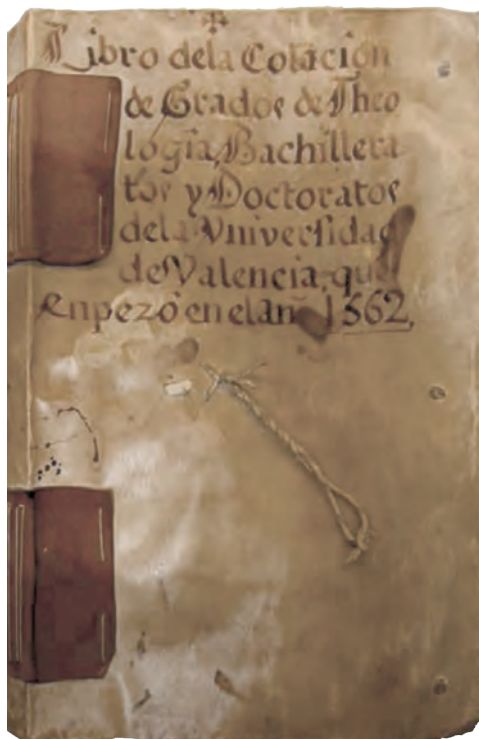 Libro dela Colacion
de Grados de Theo
logia, Bachillera
tos y Doctoratos
dela Vniversidad
de Valencia, que
enpezó en el año 1562,